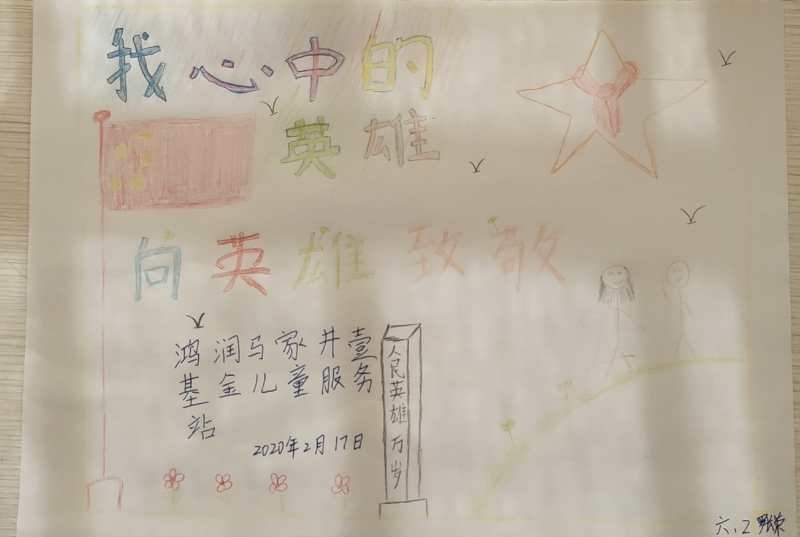 我心中的
英雄
向英雄致敬
鸿润马家井壹
基金儿童服务
站
2020年2月17日
人民英雄万岁
六.2